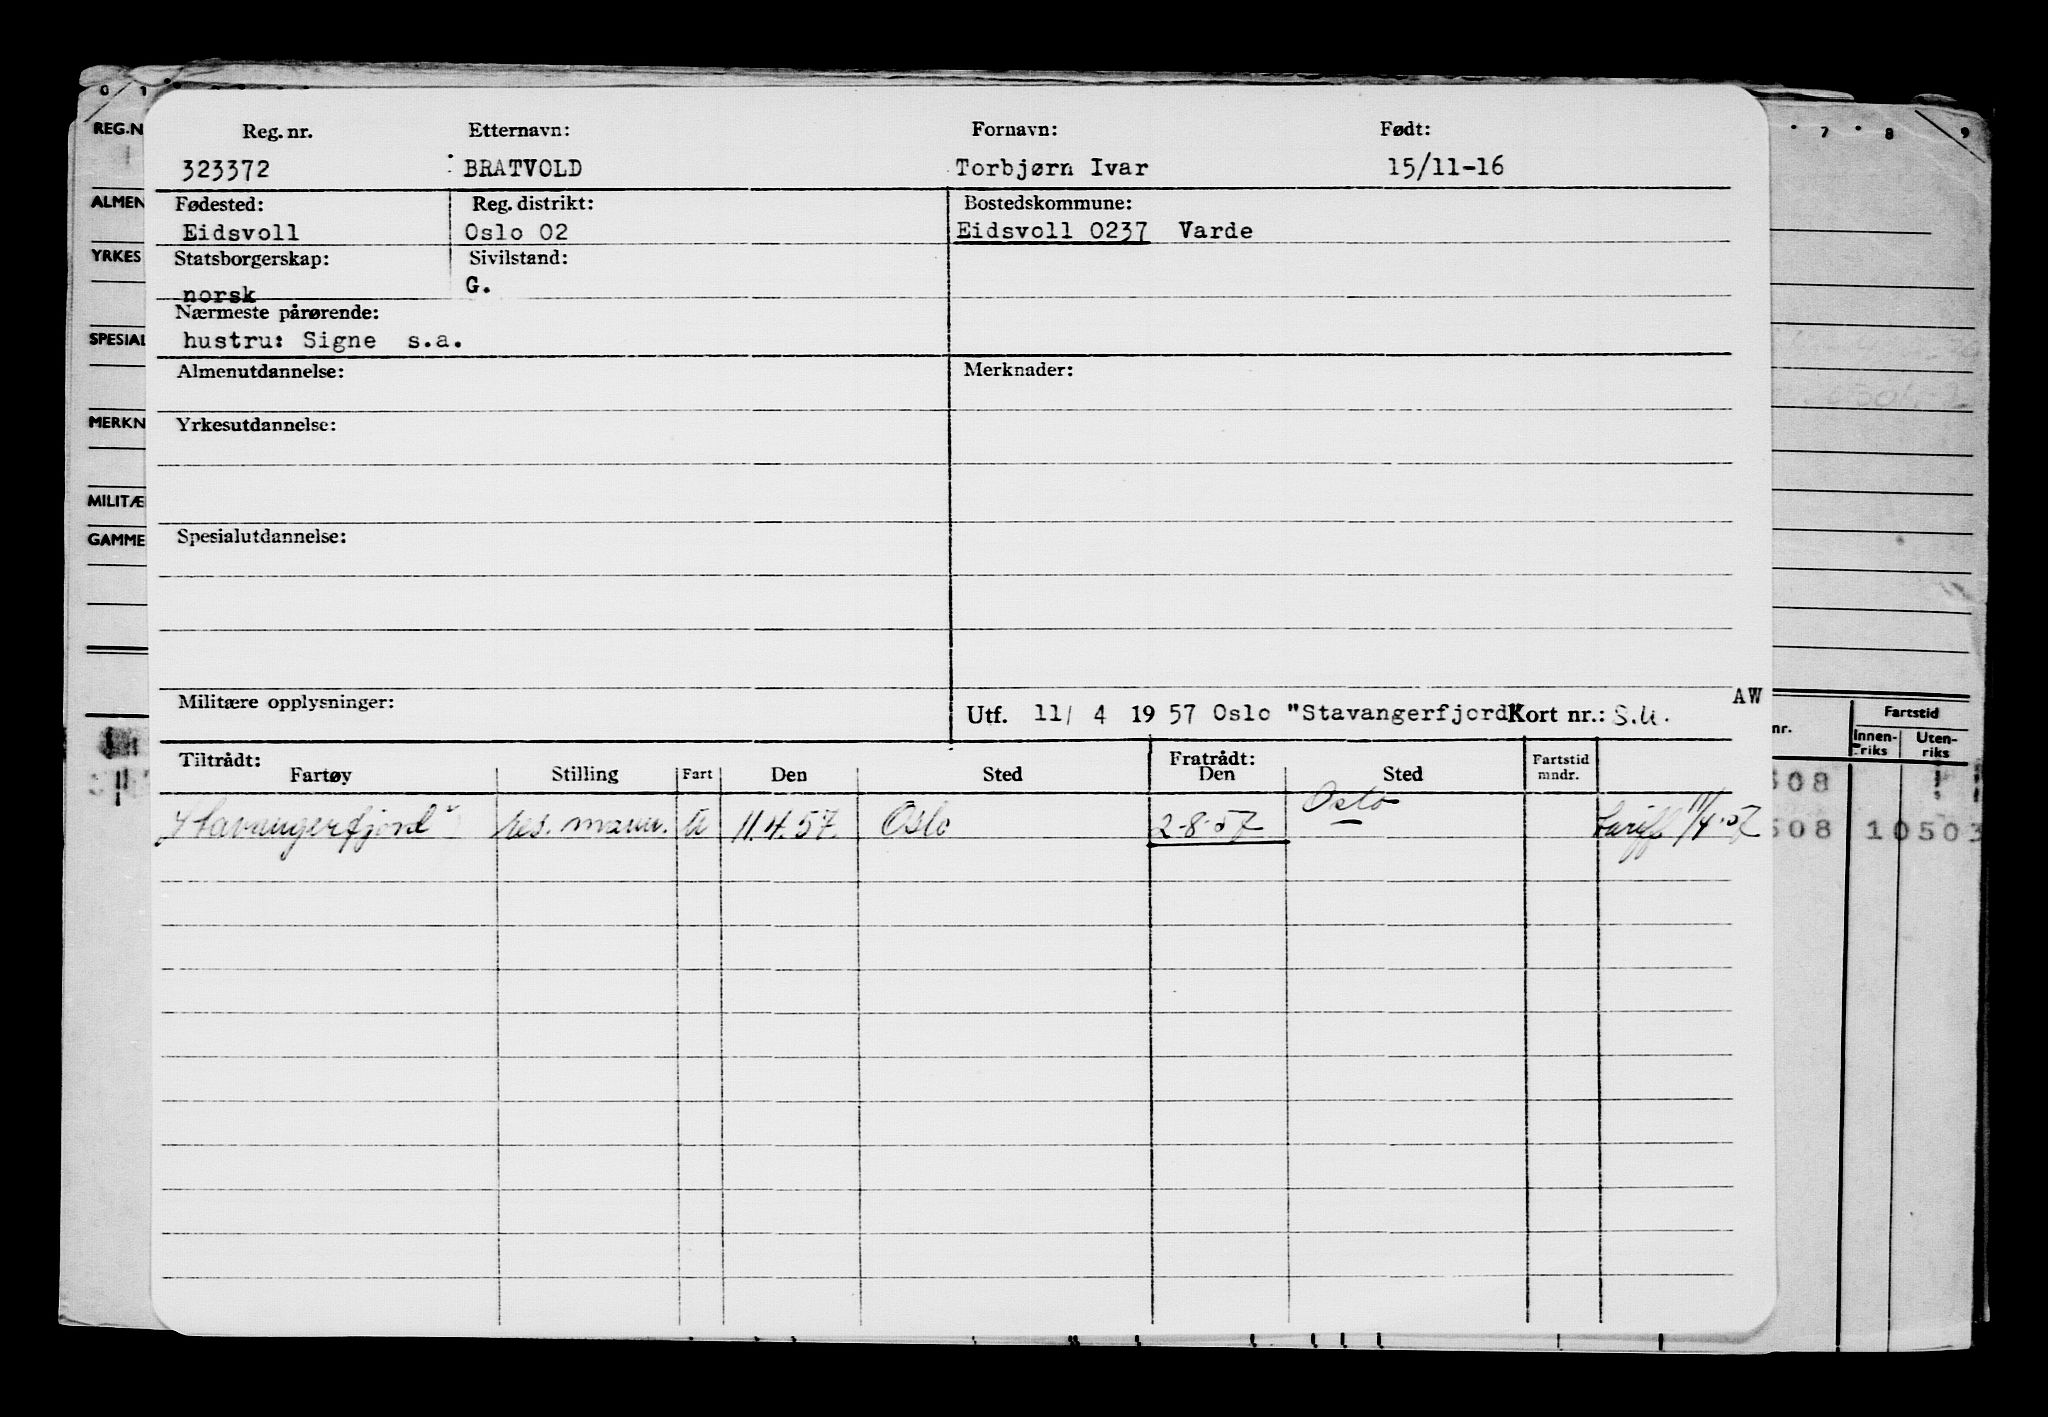 0 1 7 8 9
REG.N
Reg. nr. Etternavn: Fornavn: Født:
323372 BRATVOLD Torbjørn Ivar 15/11-16
ALMEN
Fødested: Reg. distrikt: Bostedskommune:
Eidsvoll Oslo 02 Eidsvoll 0237 Varde
YRKES
Statsborgerskap: Sivilstand:
norsk G.
Nærmeste pårørende:
SPESIAL
hustru: Signe s.a.
Almenutdannelse: Merknader:
MERKN
Yrkesutdannelse:
MILITÆ
GAMME
Spesialutdannelse:
Militære opplysninger:
AW
Utf. 11/ 4 19 57 Oslo "Stavangerfjord Kort nr.: S.U.
nr. Fartstid
Innen-riks Uten-riks
Tiltrådt: Fratrådt:
Fartøy Stilling Fart Den Sted Den Sted Fartstid mndr.
508
"Stavangerfjord" res. mann. U 11.4.57. Oslo 2-8-57 Oslo Tariff 11/4-57
508 10503